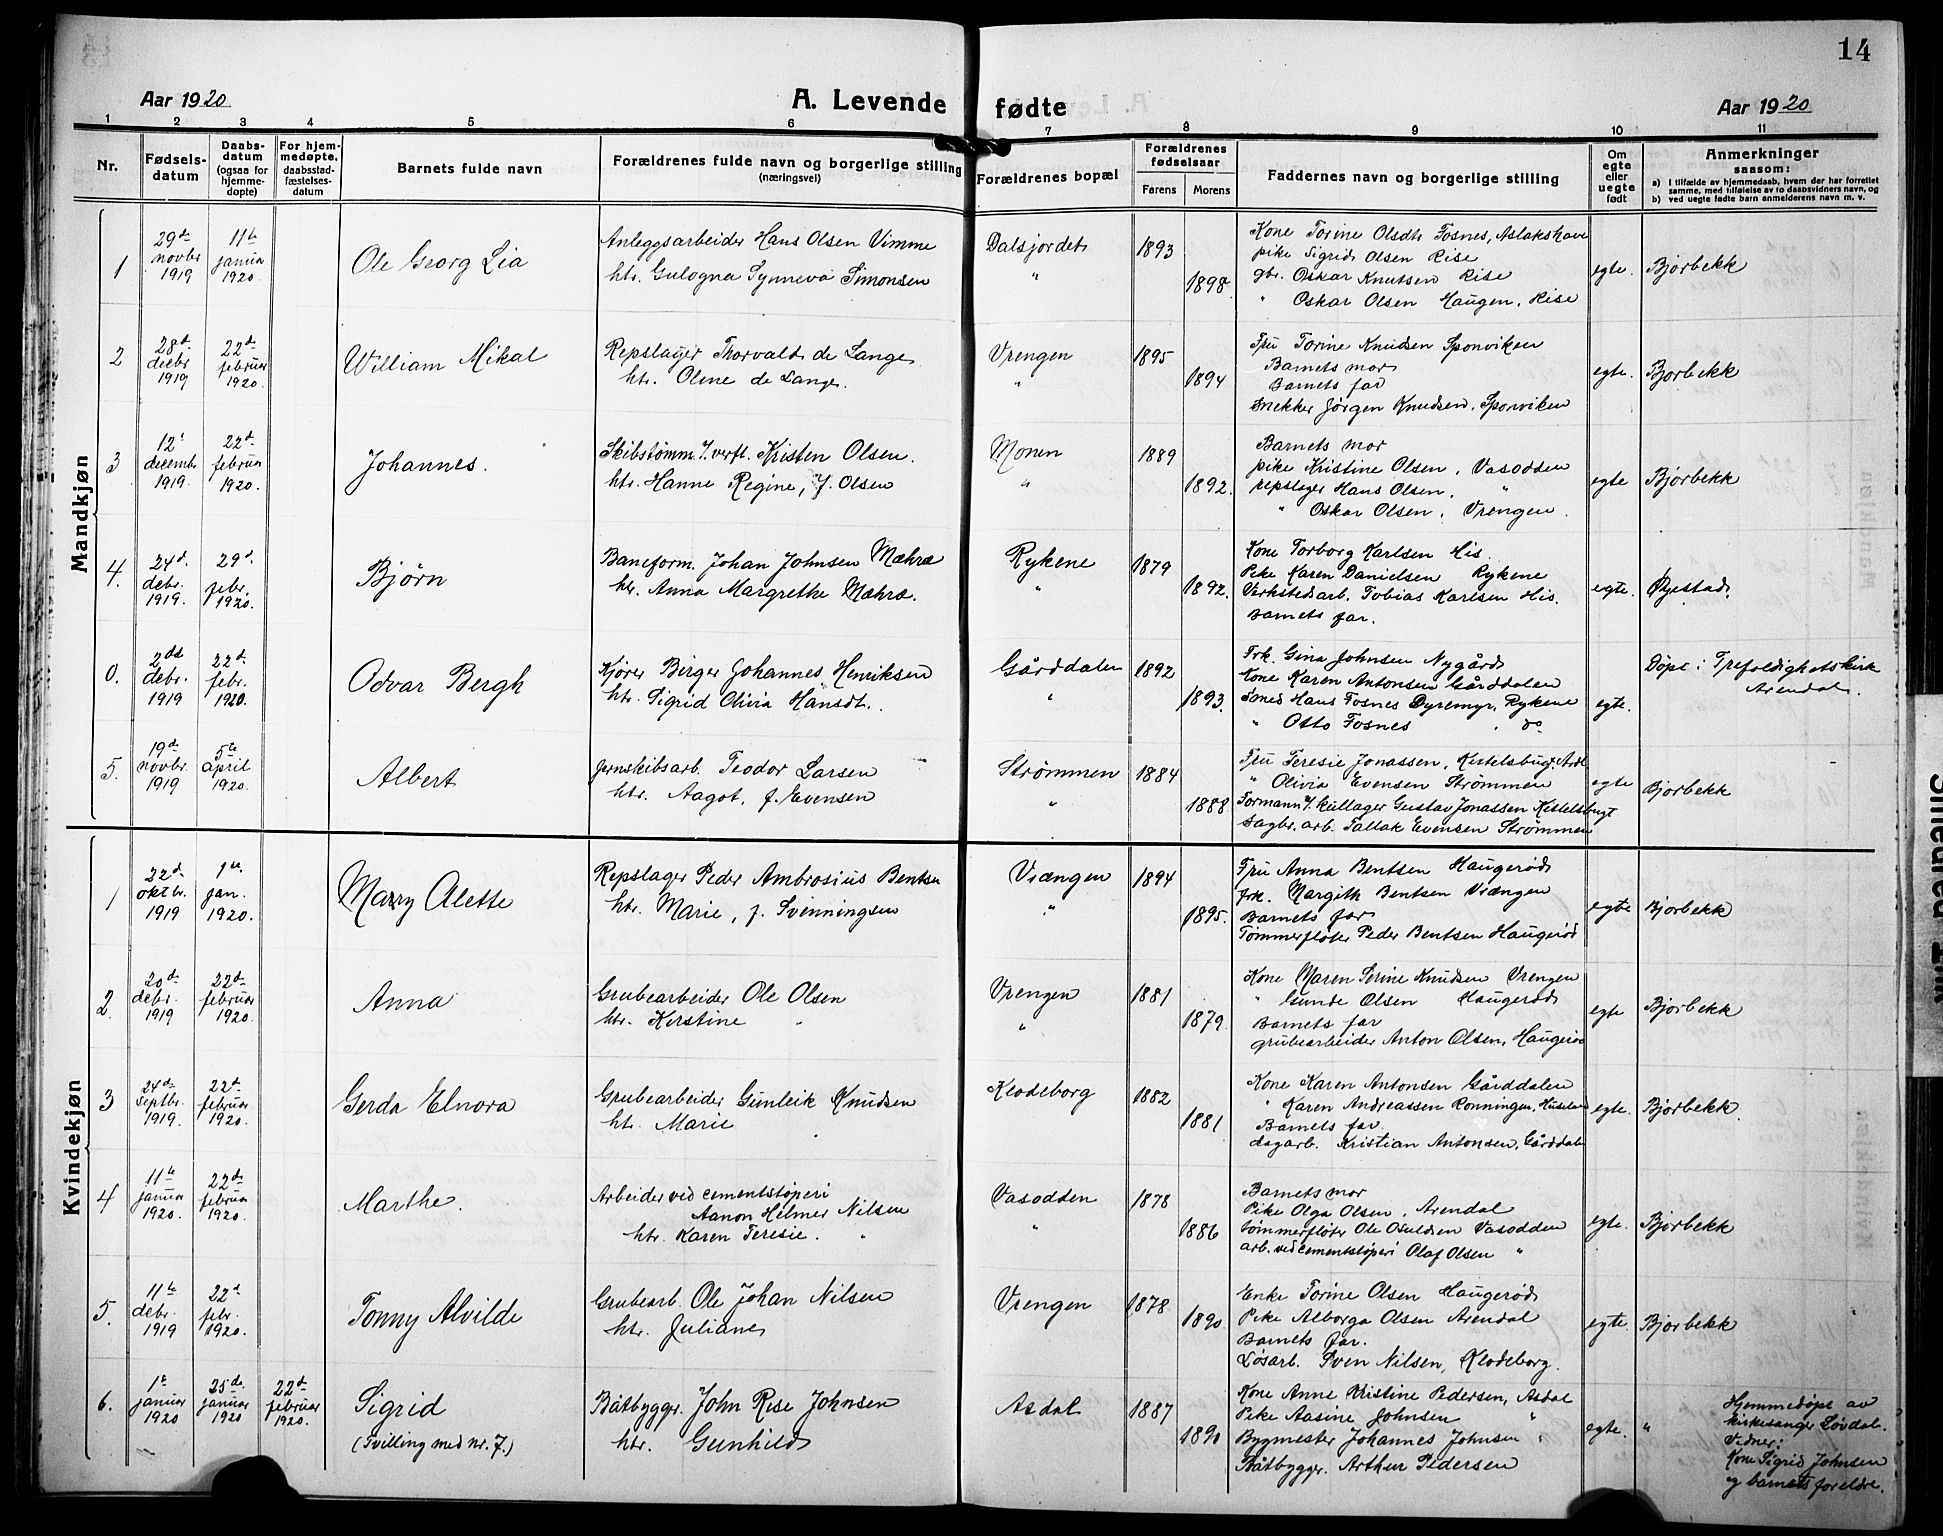 14
Aar 1920
A. Levende fødte
Aar 1920
1 2 3 4 5 6 7 8 9 10 11
Nr.
Fødsels-
datum
Daabs-
datum
(ogsaa for
hjemme-
døpte)
For hjem-
medøpte,
daabsstad-
fæstelses-
datum
Barnets fulde navn
Forældrenes fulde navn og borgerlige stilling
(næringsvei)
Forældrenes bopæl
Forældrenes
fødselsaar
Farens Morens
Faddernes navn og borgerlige stilling
Om
egte
eller
uegte
født
Anmerkninger
saasom:
a) I tilfælde av hjemmedaab, hvem der har forrettet
samme, med tilføielse av to daabsvidners navn, og
b) ved uegte fødte barn anmelderens navn m. v.
Mandkjøn
1
29de novbr 1919
11te januar 1920.
Ole Georg Lia
Anleggsarbeider Hans Olsen Vimme
htr. Gulogna Synneva Simonsen
Dalsjordet
"
1893
1898.
Kone Torine Olsdtr Fosnes, Aslakshave
pike Sigrid Olsen Rise
gbr. Oskar Knutsen Rise
" Oskar Olsen Haugen, Rise
egte.
Bjorbekk
2
28d. decbr 1919
22d. februar 1920.
William Mikal
Repslager Thorvald de Lange
htr. Oline de Lange.
Vrengen
"
1895
1894
Fru Torine Knudsen Sponviken
Barnets mor
Barnets far
Snekker Jörgen Knudsen, Sponviken
egte.
Bjorbekk
3
12t decembr 1919.
22d. februar 1920.
Johannes.
Skibstømm. v. verft. Kristen Olsen.
htr. Hanne Regine, f. Olsen
Monen
"
1889
1892.
Barnets mor
pike Kristine Olsen, Vasodden
repslager Hans Olsen, "
" Oskar Olsen, Vrengen.
egte
Bjorbekk
4.
24d. debr. 1919.
29d. febr. 1920.
Bjørn
Baneform. Johan Johnsen Mæhre
htr. Anna Margrethe Mæhre.
Rykene
"
1879
1892.
Kone Torborg Karlsen His.
Pike Karen Danielsen Rykene
Verkstedsarb. Tobias Karlsen His.
Barnets far.
egte.
Øyestad.
0.
2det debr. 1919
22d. febr. 1920.
Odvar Bergh
Kjører Birger Johannes Henriksen
htr. Sigrid Olivia Hansdt.
Gårddalen
"
1892
1893.
Frk. Gina Johnsen Nygård
Kone Karen Antonsen Gårddalen
Smed Hans Fosnes Dyremyr, Rykene
" Otto Fosnes , do
egte.
Døpt i Trefoldighetskirk
Arendal.
5.
19de novbr. 1919
5te april 1920.
Albert
Jernskibsarb. Teodor Larsen
htr. Aagot, f. Evensen
Strømmen
"
1884
1888
Fru Teresie Jonassen, Kittelsbugt, Ardl
" Olivia Evensen Strømmen
Formann v. kullager Gustav Jonassen Kittelsbugt
Sagbr. arb. Tallak Evensen Strømmen
egte
Bjorbekk
Kvindekjøn
1
22d. oktbr. 1919
1ste jan. 1920.
Marry Alette
Repslager Peder Ambrosius Bentsen
htr. Marie, f. Svenningsen
Viængen
"
1894
1895.
Fru Anna Bentsen Haugerød
frk. Margith Bentsen Viængen
Barnets far
Tømmerfløter Peder Bentsen Haugerød
egte
Bjorbekk
2.
20d. debr. 1919
22d. februar 1920.
Anna
Grubearbeider Ole Olsen
htr. Kirstine "
Vrengen
"
1881
1879.
Kone Maren Serine Knudsen Vrengen
" Gunde Olsen Haugerød
Barnets far
grubearbeider Anton Olsen, Haugerød
egte
Bjorbekk
3
24de septbr. 1919.
22d. februar 1920.
Gerda Elnora
Grubearbeider Gunleik Knudsen
htr. Marie "
Klodeborg
1882
1881
Kone Karen Antonsen Gårddalen
" Karen Andreassen Rønningen,
Barnets far.
dagarb. Kristian Antonsen, Gårddalen
egte.
Bjorbekk.
4
11te januar 1920.
22d. februar 1920.
Marthe.
Arbeider ved cementstøperi
Aanon Helmer Nilsen
htr. Karen Teresie. "
Vasodden
"
1878
1886
Barnets mor
Pike Olga Olsen, Arendal
tømmerfløter Ole Osuldsen Vasodden
arb. ved cementstøperi Olaf Olsen "
egte.
Bjorbekk
5.
11te debr. 1919
22d febr. 1920.
Tonny Alvilde
Grubearb. Ole Johan Nilsen
htr. Juliane "
Vrengen
1878
1890
Enke Torine Olsen Haugerød
Pike Alborga Olsen Arendal
Barnets far.
Løsarb. Sven Nilsen, Klodeborg.
egte
Bjorbekk
6.
1te januar 1920
25de januar 1920
22d februar 1920.
Sigrid
(Tvilling med nr. 7.)
Båtbyggr. John Rise Johnsen
htr. Gunhild "
Asdal
1887
1890
Kone Anne Kristine Pedersen, Asdal
Pike Aasine Johnsen "
Bygmester Johannes Johnsen "
Båtbyggr. Arthur Pedersen
egte.
"
Hjemmedøpt av
kirkesanger Løvdal.
Vidner:
Kone Sigrid Johnsen
og barnets foreldre.